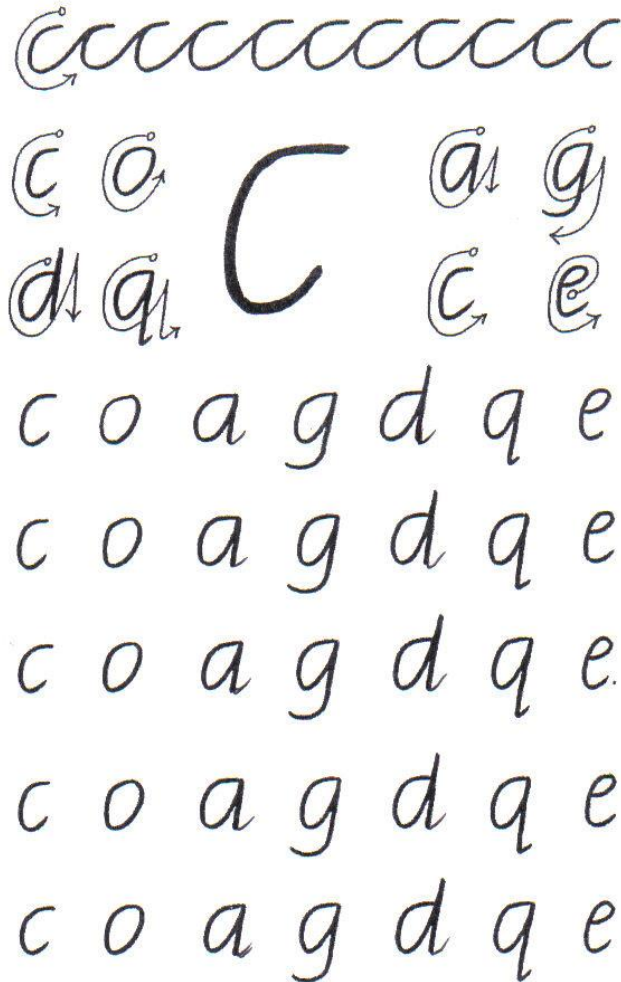 ccccccccccc
c o C a g
d q c e
c o a g d q e
c o a g d q e
c o a g d q e.
c o a g d q e
c o a g d q e